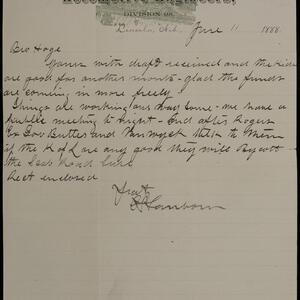 Locomotive Engineers,
DIVISION 98.
Lincoln, Neb. June 11 1888
Bro Hoge
Yours with draft received and the kids
are good for another month - glad the funds
are coming in more freely.
Things are working our way some - we have a
public meeting to night - and after Rogers
Ex Gov Butler and talk to them
if the K of L are any good they will Boycott
the Road sure
Rect enclosed
Frat